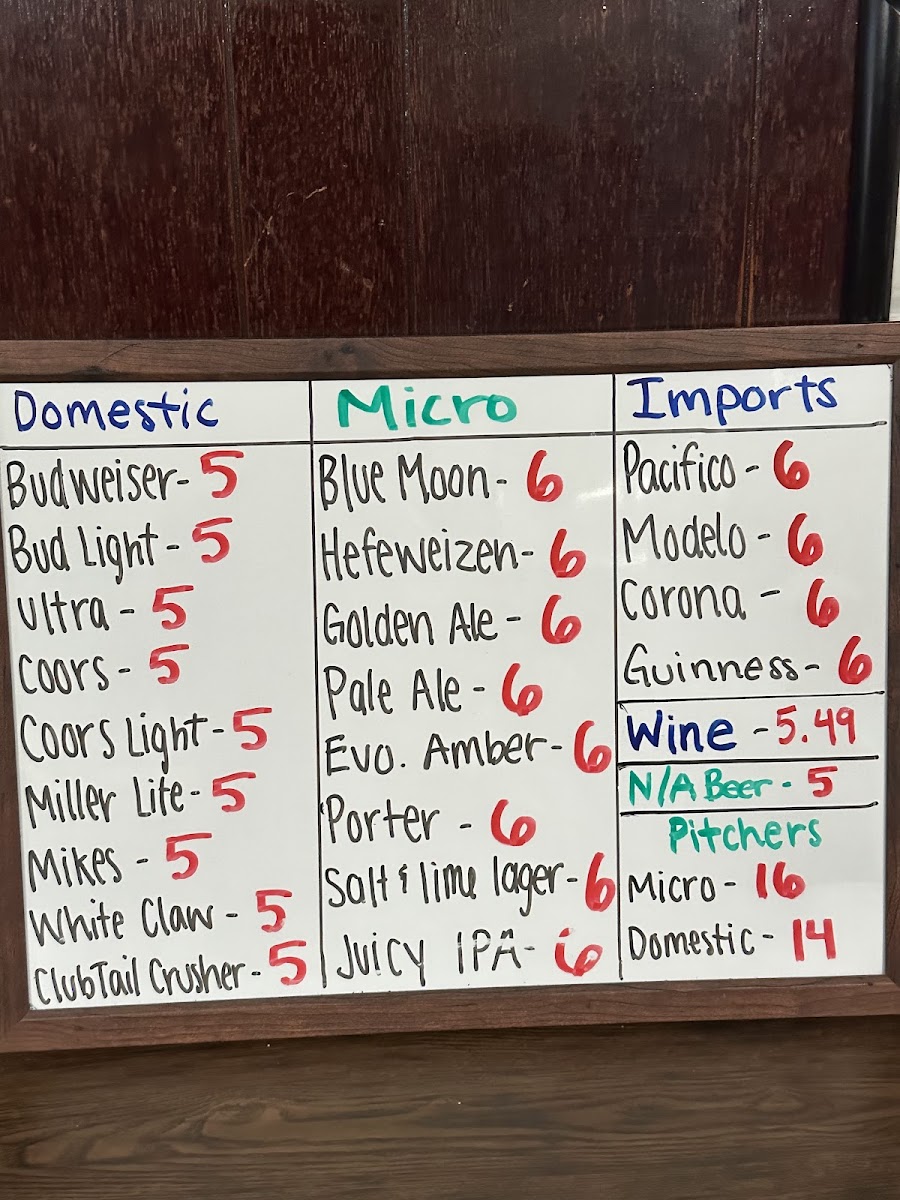 Domestic
Budweiser- 5
Bud Light - 5
Ultra - 5
Coors - 5
Coors Light - 5
Miller Lite - 5
Mikes - 5
White Claw - 5
ClubTail Crusher - 5
Micro
Blue Moon - 6
Hefeweizen - 6
Golden Ale - 6
Pale Ale - 6
Evo. Amber - 6
Porter - 6
Salt & lime lager - 6
Juicy IPA - 6
Imports
Pacifico - 6
Modelo - 6
Corona - 6
Guinness - 6
Wine - 5.49
N/A Beer - 5
Pitchers
Micro - 16
Domestic - 14